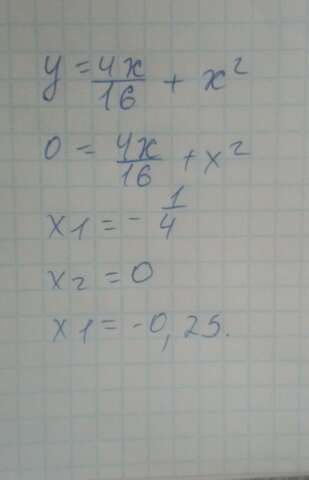 y = 4x/16 + x²
0 = 4x/16 + x²
x1 = - 1/4
x2 = 0
x1 = -0,25.